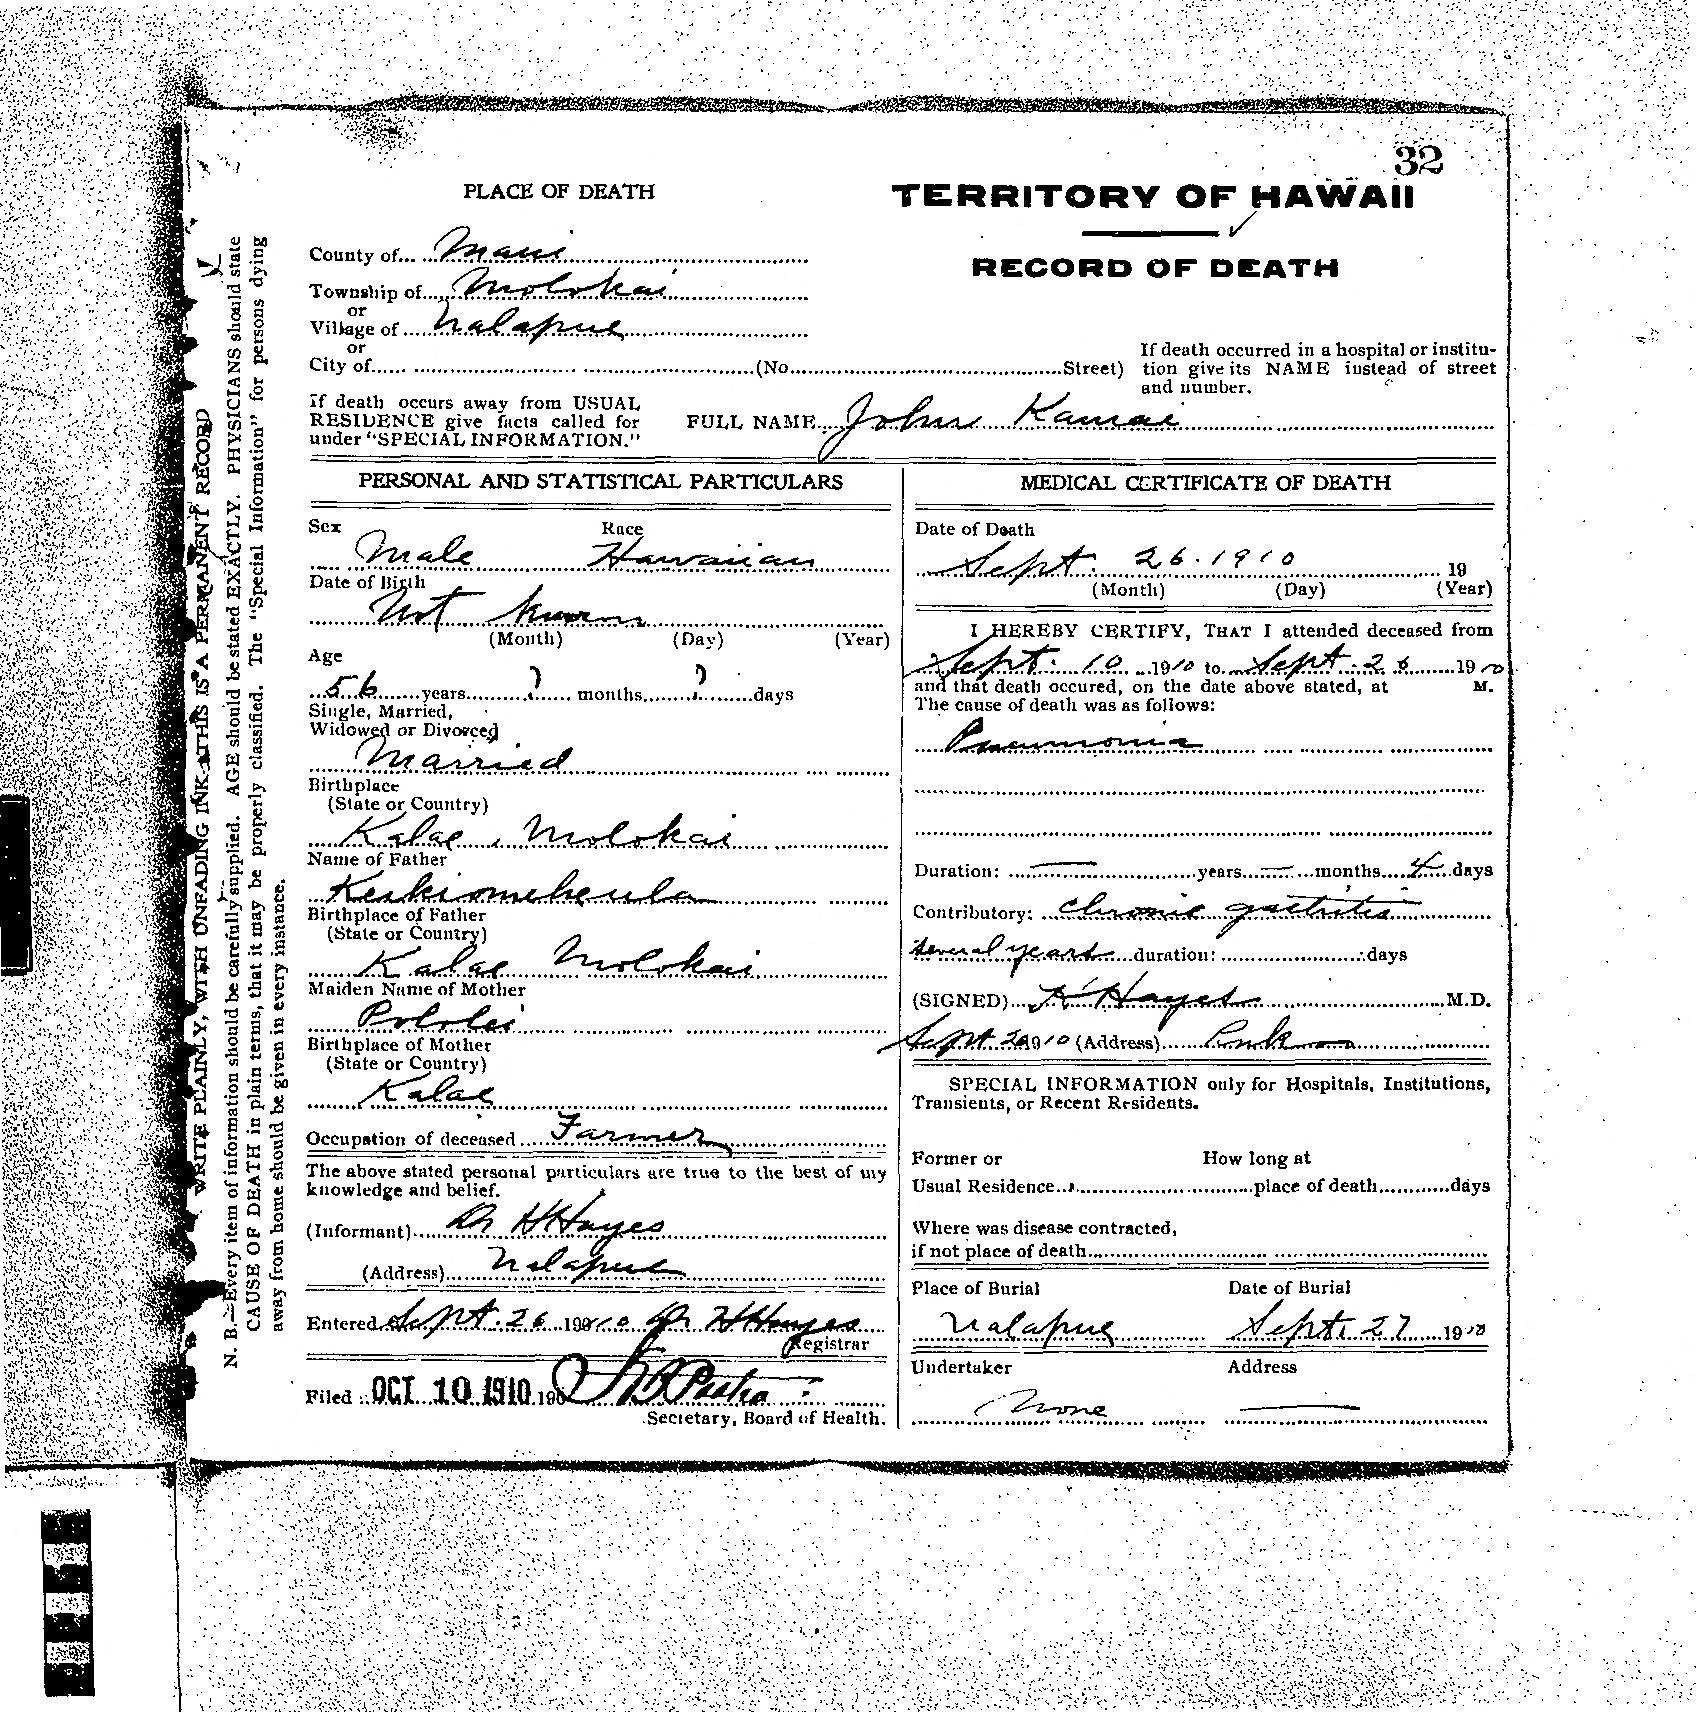 32
PLACE OF DEATH
TERRITORY OF HAWAII
RECORD OF DEATH
County of Maui
Township of Molokai
or
Village of Ualapue
or
City of (No. Street)
If death occurred in a hospital or institu-
tion give its NAME instead of street
and number.
If death occurs away from USUAL
RESIDENCE give facts called for
under "SPECIAL INFORMATION."
FULL NAME John Kamai
PERSONAL AND STATISTICAL PARTICULARS
Sex Race
Male Hawaiian
Date of Birth
Not known
(Month) (Day) (Year)
Age
56 years ? months ? days
Single, Married,
Widowed or Divorced
Married
Birthplace
(State or Country)
Kalae, Molokai
Name of Father
Birthplace of Father
(State or Country)
Kalae Molokai
Maiden Name of Mother
Pololei
Birthplace of Mother
(State or Country)
Kalae
Occupation of deceased Farmer
The above stated personal particulars are true to the best of my
knowledge and belief.
(Informant) Dr H Hayes
(Address) Ualapue
Entered Sept. 26 1910 Dr H Hayes
Registrar
Filed OCT 10 1910 190
Secretary, Board of Health.
MEDICAL CERTIFICATE OF DEATH
Date of Death
Sept. 26. 1910 19
(Month) (Day) (Year)
I HEREBY CERTIFY, THAT I attended deceased from
Sept. 10 1910 to Sept. 26 1910
and that death occured, on the date above stated, at M.
The cause of death was as follows:
Pneumonia
Duration: — years — months 4 days
Contributory: chronic gastritis
several years duration: days
(SIGNED) Hayes M.D.
Sept 1910 (Address)
SPECIAL INFORMATION only for Hospitals, Institutions,
Transients, or Recent Residents.
Former or How long at
Usual Residence place of death days
Where was disease contracted,
if not place of death
Place of Burial Date of Burial
Ualapue Sept. 27 1910
Undertaker Address
None —
WRITE PLAINLY, WITH UNFADING INK—THIS IS A PERMANENT RECORD
N. B.—Every item of information should be carefully supplied. AGE should be stated EXACTLY. PHYSICIANS should state
CAUSE OF DEATH in plain terms, that it may be properly classified. The "Special Information" for persons dying
away from home should be given in every instance.